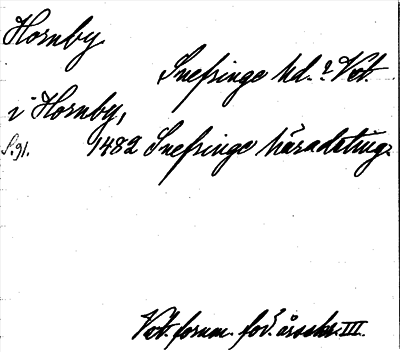 Hornby
Snefringe hd. ? Vst.
i Hornby,
S. 91. 1482 Snefringe häradsting.
Vst. fornm. fören. årsskr. III.